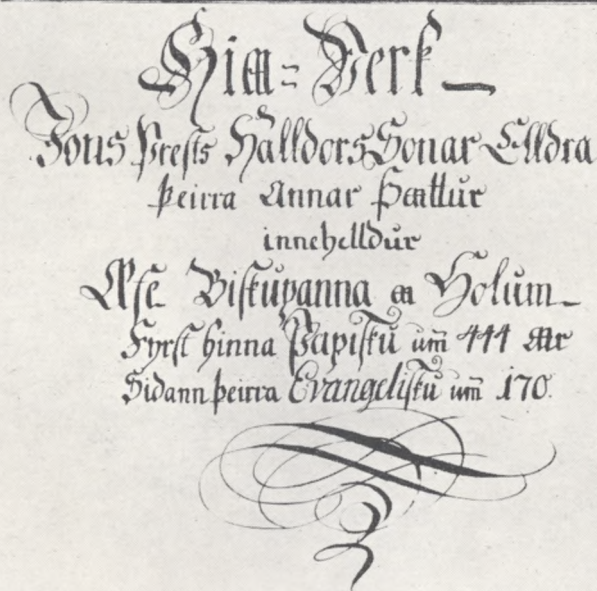 Hiꜳ=Verk –
Jons Prests Halldors Sonar Elldra
þeirra Annar Þꜳttur
innehelldur
Æfe Biskupanna ꜳ Holum –
Fyrst hinna Papisku um̄ 444 Ꜳr
Sidann þeirra Evangelisku um̄ 170.